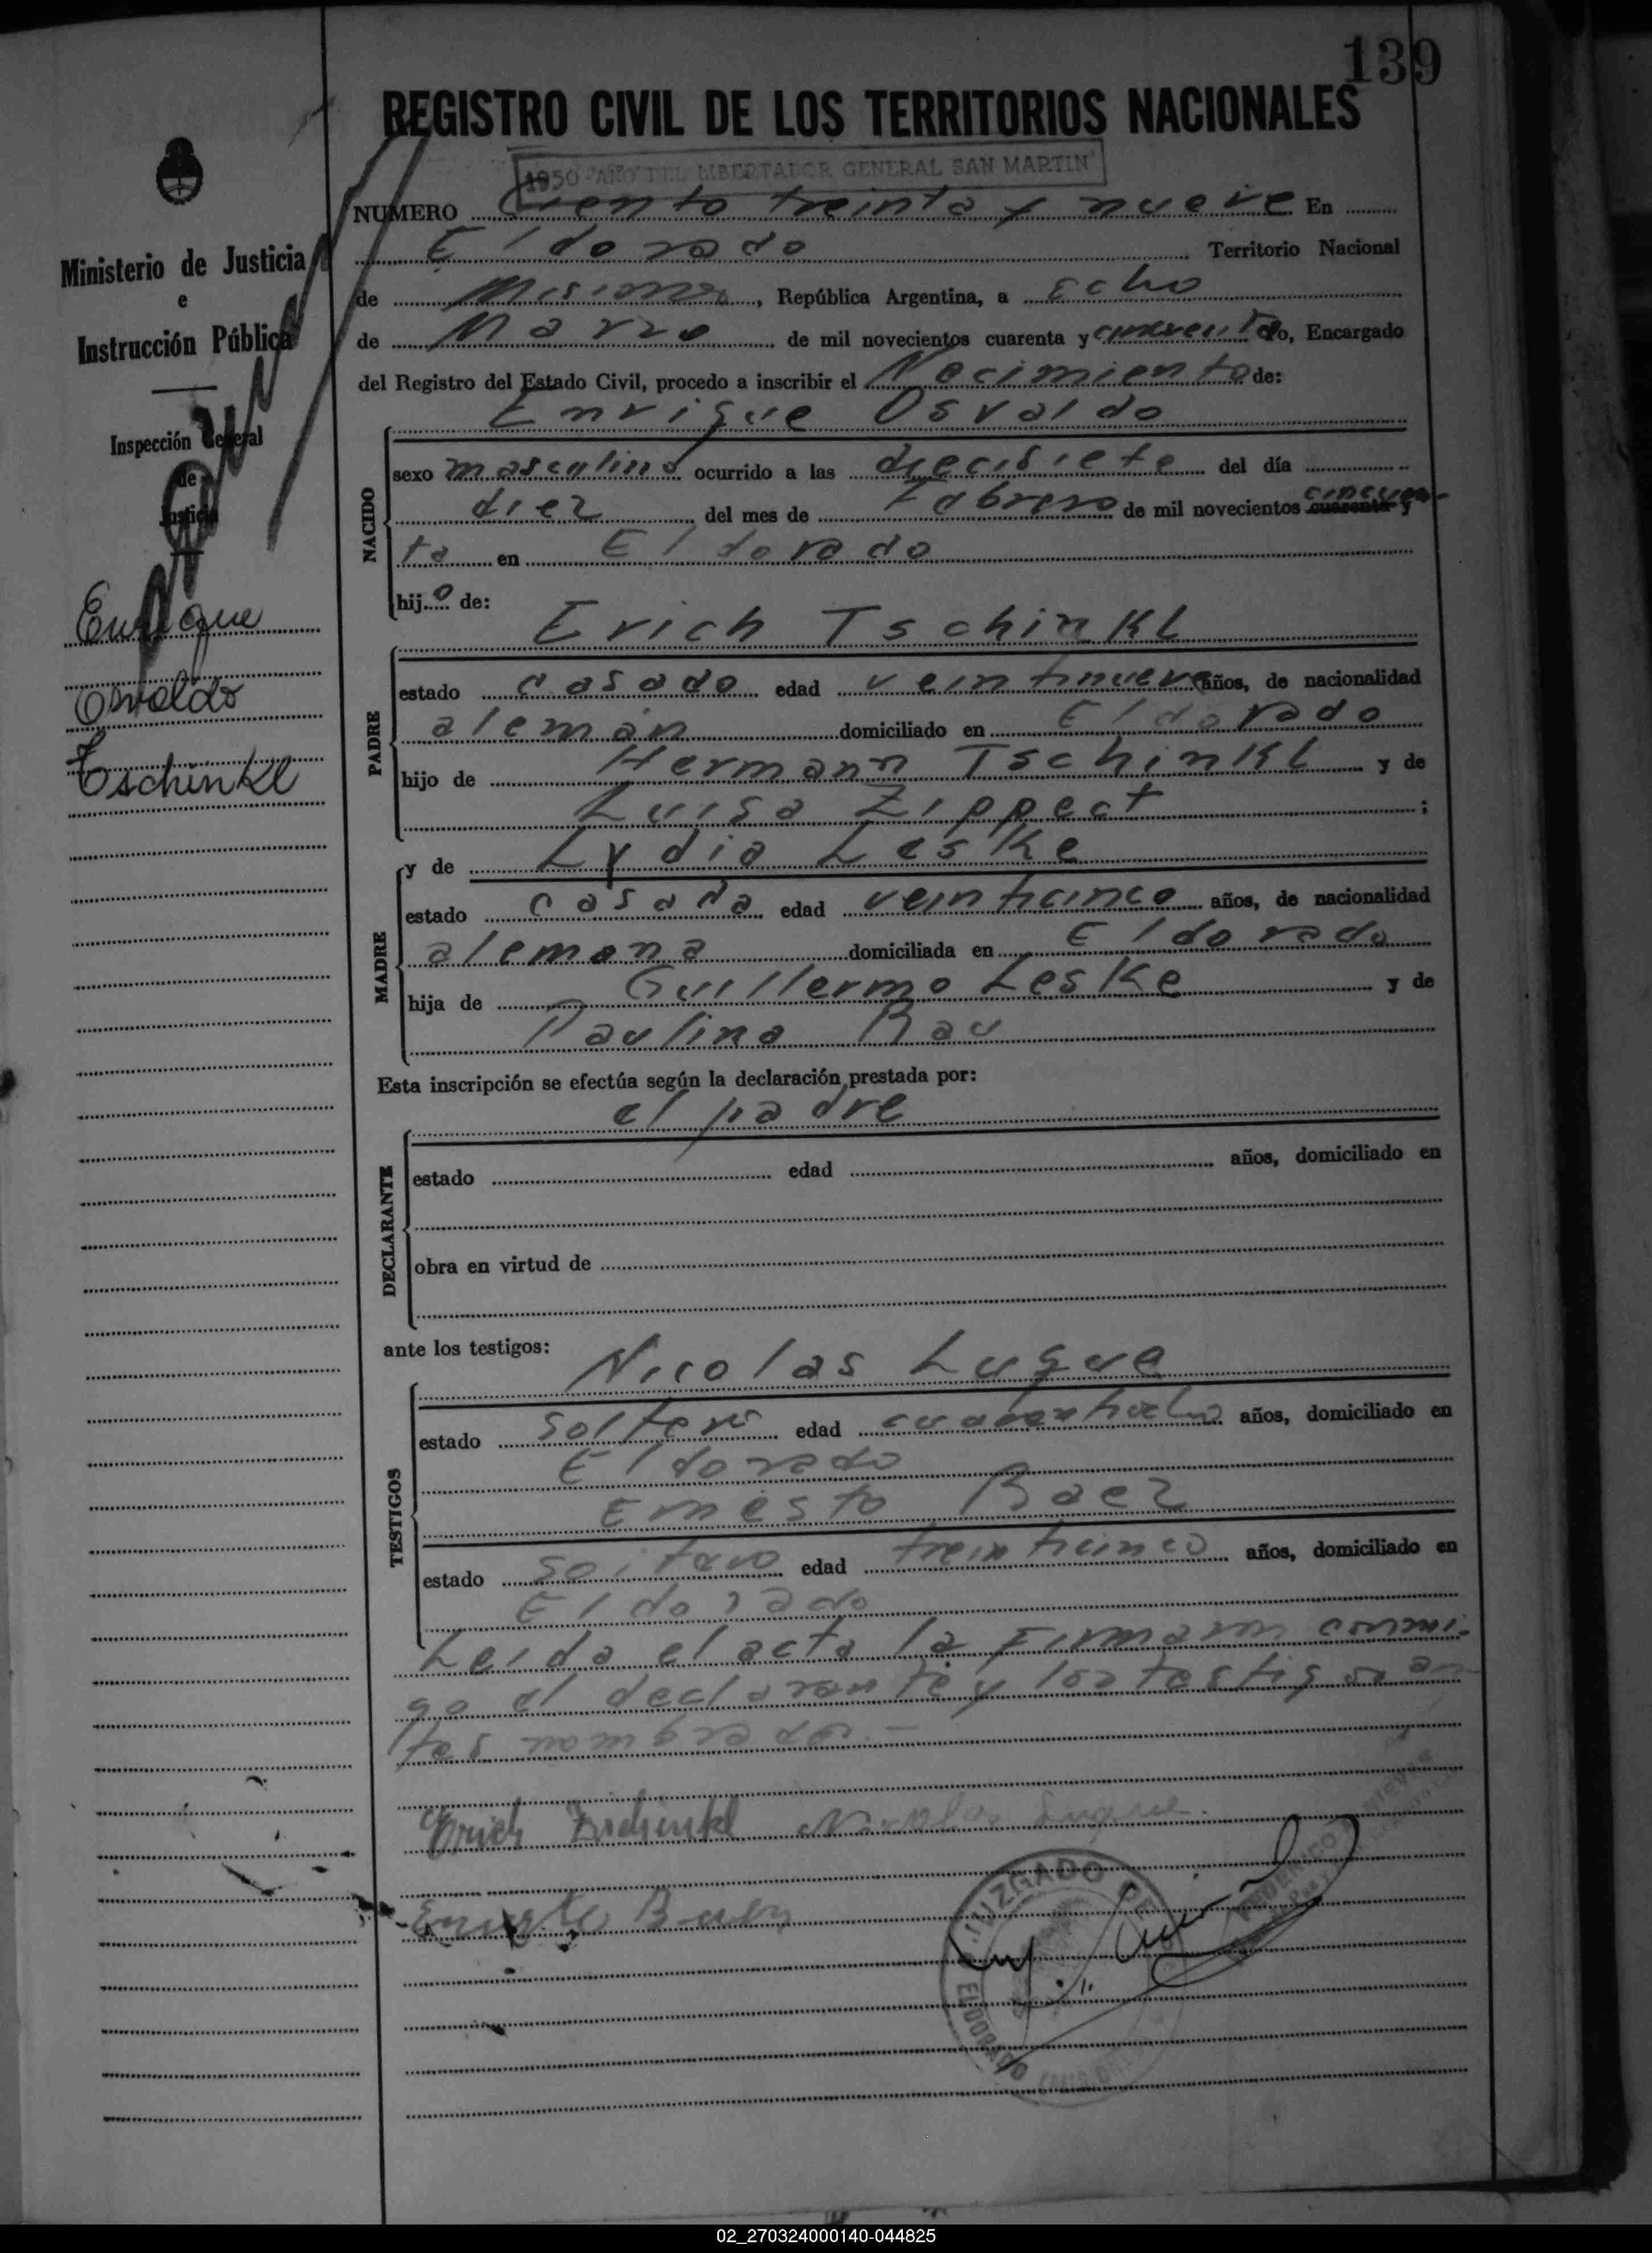 139
REGISTRO CIVIL DE LOS TERRITORIOS NACIONALES
1950 "AÑO DEL LIBERTADOR GENERAL SAN MARTIN"
NUMERO Ciento treinta y nueve En
Eldorado Territorio Nacional
de Misiones, República Argentina, a ocho
de Marzo de mil novecientos cuarenta y, Encargado
del Registro del Estado Civil, procedo a inscribir el Nacimiento de:
Ministerio de Justicia
e
Instrucción Pública
Inspección General
de
Justicia
Enrique
Osvaldo
Tschinkl
Enrique Osvaldo
NACIDO
sexo masculino ocurrido a las diecisiete del día
diez del mes de Febrero de mil novecientos cuarenta y cincuen-
ta en Eldorado
hijo de:
Erich Tschinkl
PADRE
estado casado edad veintinueve años, de nacionalidad
alemán domiciliado en Eldorado
hijo de Hermann Tschinkl y de
Luisa Zippect;
y de Lydia Leske
MADRE
estado casada edad veinticinco años, de nacionalidad
alemana domiciliada en Eldorado
hija de Guillermo Leske y de
Paulina Rau
Esta inscripción se efectúa según la declaración prestada por:
el padre
DECLARANTE
estado edad años, domiciliado en
obra en virtud de
ante los testigos:
Nicolas Luque
TESTIGOS
estado soltero edad años, domiciliado en
Eldorado
Ernesto Baez
estado soltero edad treinticinco años, domiciliado en
Eldorado
Leida el acta la firmaron conmi-
go el declarante y los testigos an-
tes nombrados.-
Erich Tschinkl Nicolas Luque
Ernesto Baez
JUZGADO DE PAZ
ELDORADO
02_270324000140-044825